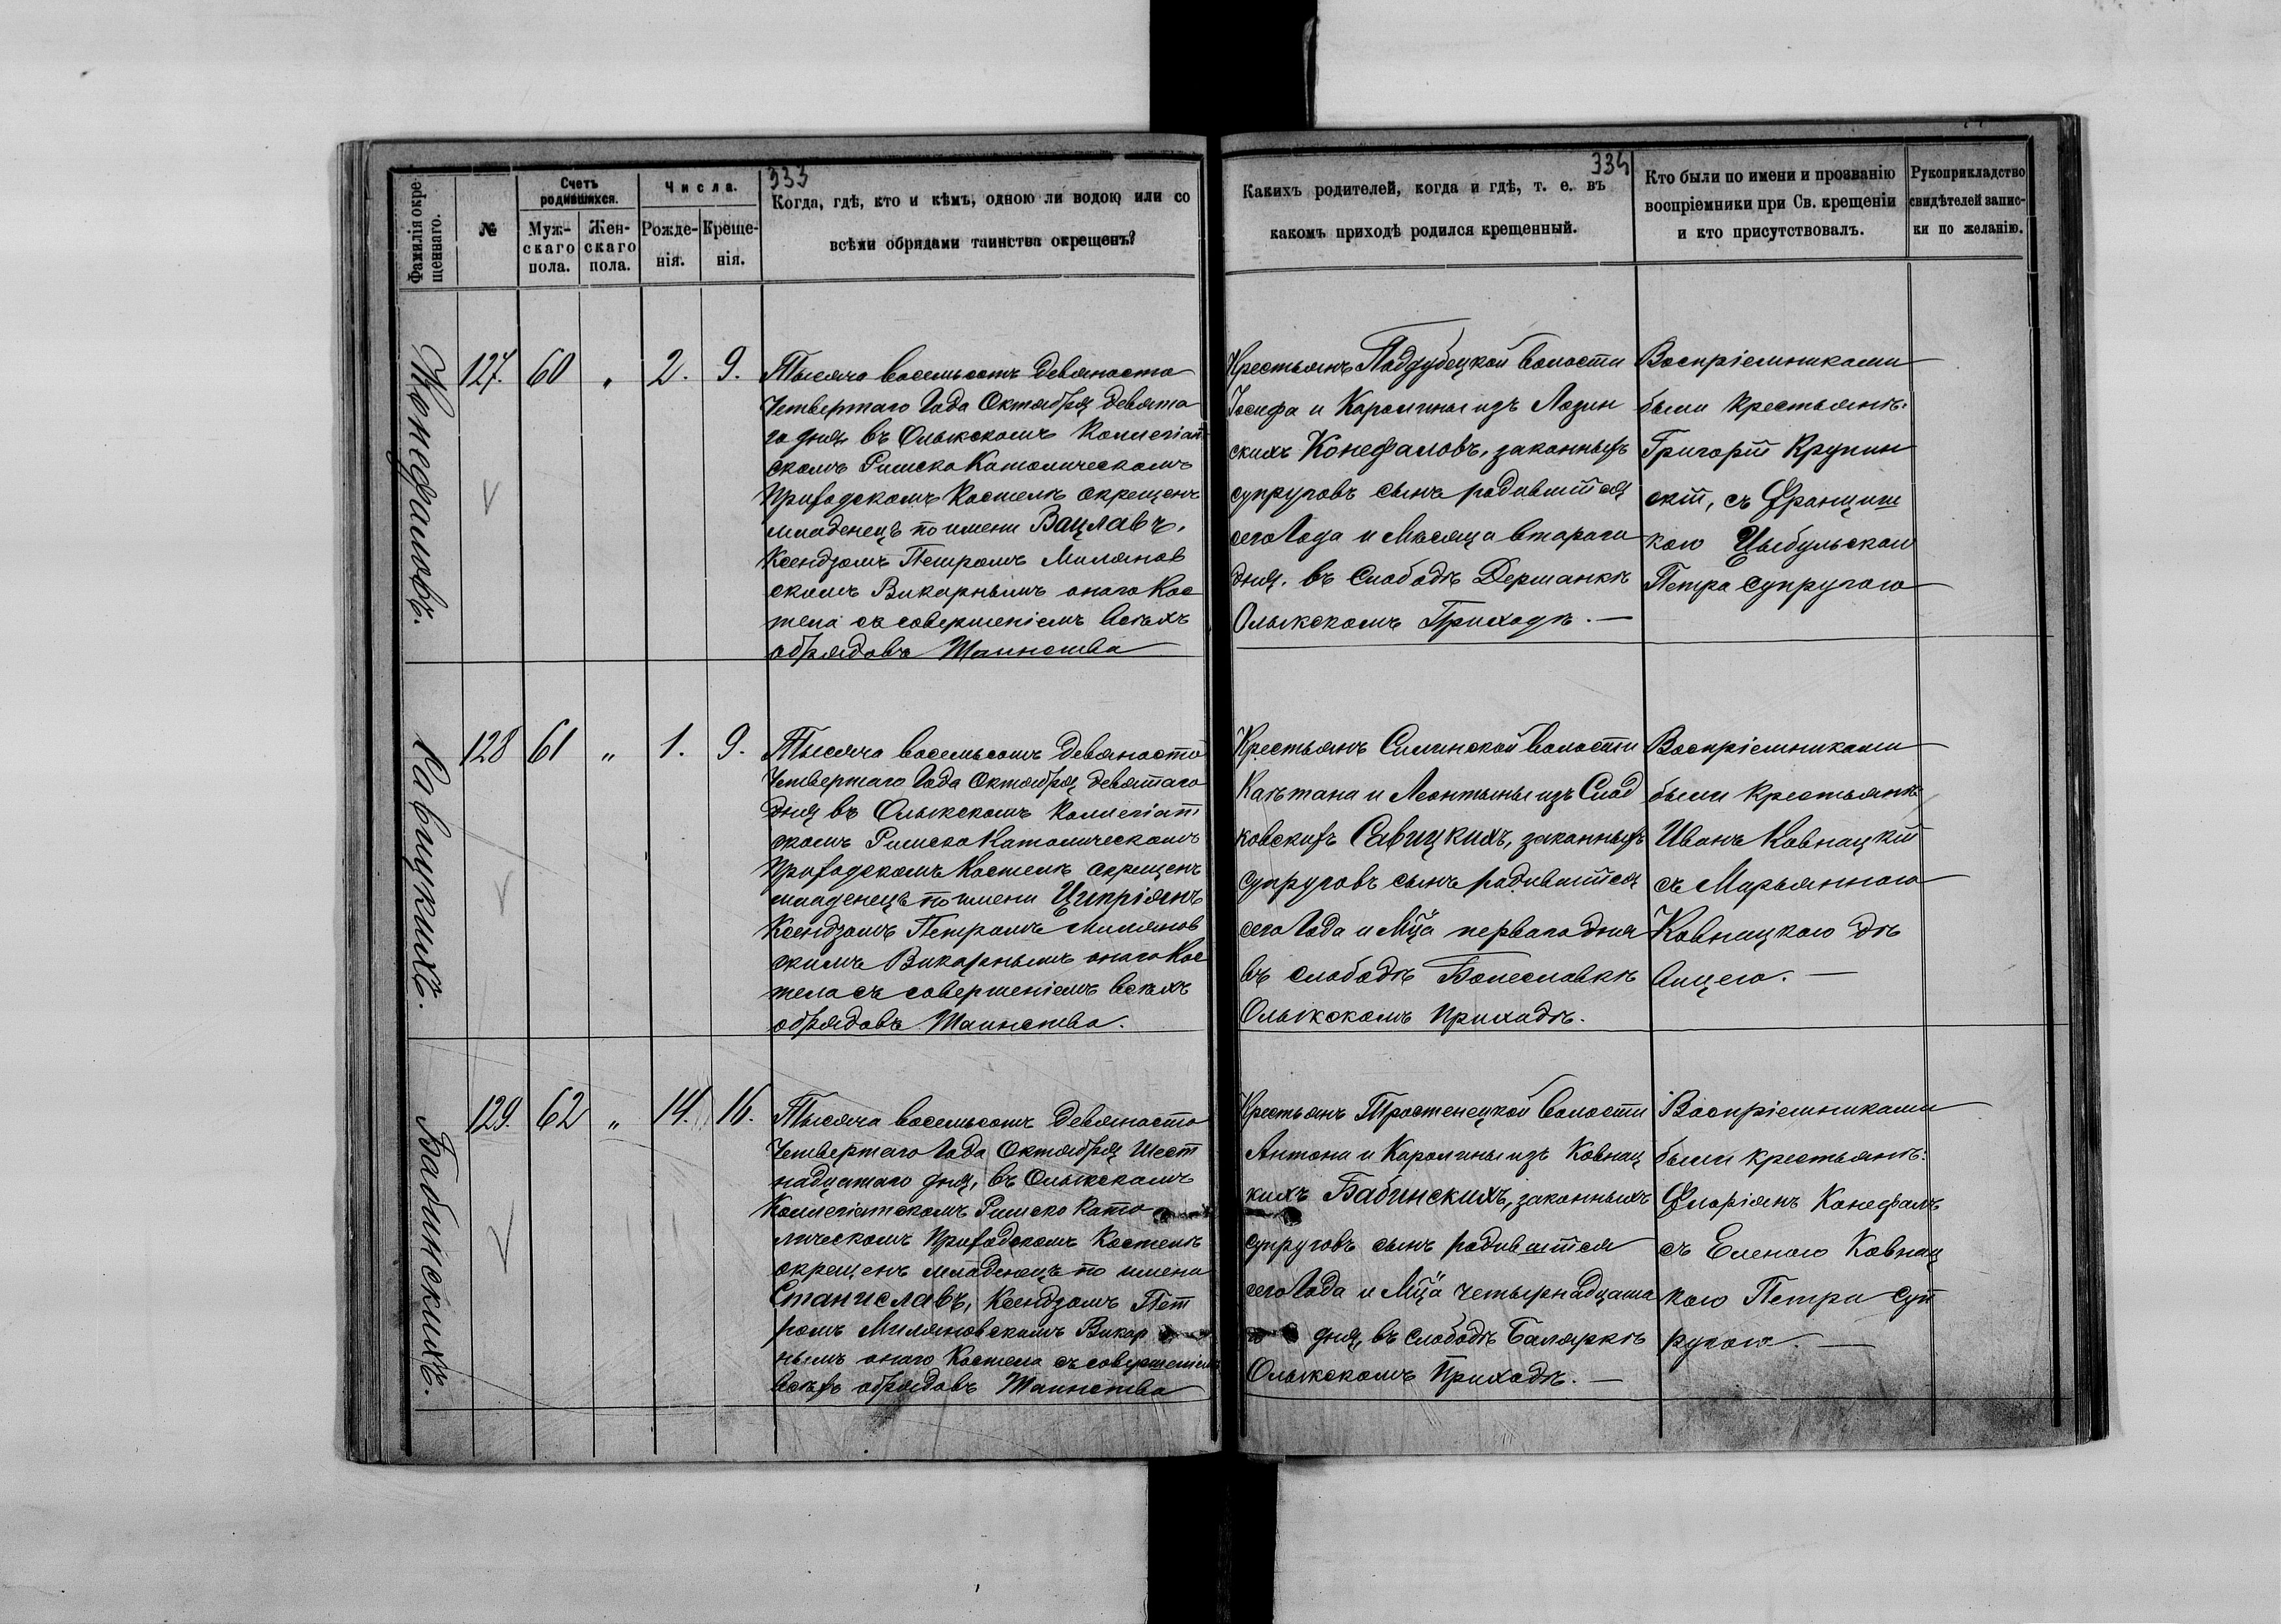 333
334
Фамилія окре-
щеннаго.
№
Счетъ
родившихся.
Муж-
скаго
пола.
Жен-
скаго
пола.
Числа.
Рожде-
нія.
Креще-
нія.
Когда, гдѣ, кто и кѣмъ, одною ли водою или со
всѣми обрядами таинства окрещенъ?
Какихъ родителей, когда и гдѣ, т. е. въ
какомъ приходѣ родился крещенный.
Кто были по имени и прозванію
воспріемники при Св. крещеніи
и кто присутствовалъ.
Рукоприкладство
свидѣтелей запис-
ки по желанію.
Конефаловъ.
127. 60 „ 2. 9.
Тысяча восемьсотъ девяносто
Четвертаго Года Октября девята
го дня въ Олыкскомъ Коллегіат
скомъ Римско Католическомъ
Приходскомъ Костелѣ окрещенъ
младенецъ по имени Вацлавъ,
Ксендзомъ Петромъ Милянов
скимъ Викарнымъ онаго Кос
тела съ совершеніемъ всѣхъ
обрядовъ Таинства
Крестьянъ Поддубецкой волости
Іосифа и Каролины изъ Лозин
скихъ Конефаловъ, законныхъ
супруговъ сынъ родившійся
сего Года и Мѣсяца втораго
дня, въ Слободѣ Держанкѣ
Олыкскомъ Приходѣ. —
Воспріемниками
были Крестьянѣ:
Григорій Крупин
скій, съ Францишк
кою Цыбульскою
Петра супругою
Савицкихъ.
128 61 „ 1. 9.
Тысяча восемьсотъ девяносто
Четвертаго Года Октября девятаго
дня въ Олыкскомъ Коллегіат
скомъ Римско Католическомъ
Приходскомъ Костелѣ окрещенъ
младенецъ по имени Ципріянъ
Ксендзомъ Петромъ Миляновскимъ
Викарнымъ онаго Кос
тела съ совершеніемъ всѣхъ
обрядовъ Таинства.
Крестьянъ Силинской волости
Каѣтана и Леонтыны изъ Слад
ковскихъ Савицкихъ, законныхъ
супруговъ сынъ родившійся
сего Года и Мца перваго дня
въ слободѣ Болеславкѣ
Олыкскомъ Приходѣ.
Воспріемниками
были крестьянѣ
Иванъ Ковнацкій
съ Марьянною
Ковнацкою дѣ
вицею. —
Бабинскихъ.
129. 62 „ 14. 16.
Тысяча восемьсотъ девяносто
Четвертаго Года Октября Шест
надцатаго дня, въ Олыкскомъ
Коллегіатскомъ Римско Като
лическомъ Приходскомъ Костелѣ
окрещенъ младенецъ по имени
Станиславъ, Ксендзомъ Пет
ромъ Миляновскимъ Викар
нымъ онаго Костела съ совершеніемъ
всѣхъ обрядовъ Таинства
Крестьянъ Тростенецкой волости
Антона и Каролины изъ Ковнац
кихъ Бабинскихъ, законныхъ
супруговъ сынъ родившійся
сего Года и Мца четырнадцата
дня, въ слободѣ Баляркѣ
Олыкскомъ Приходѣ. —
Воспріемниками
были крестьянѣ:
Флоріянъ Конефалъ
съ Еленою Ковнац
кою Петра суп
ругою. —